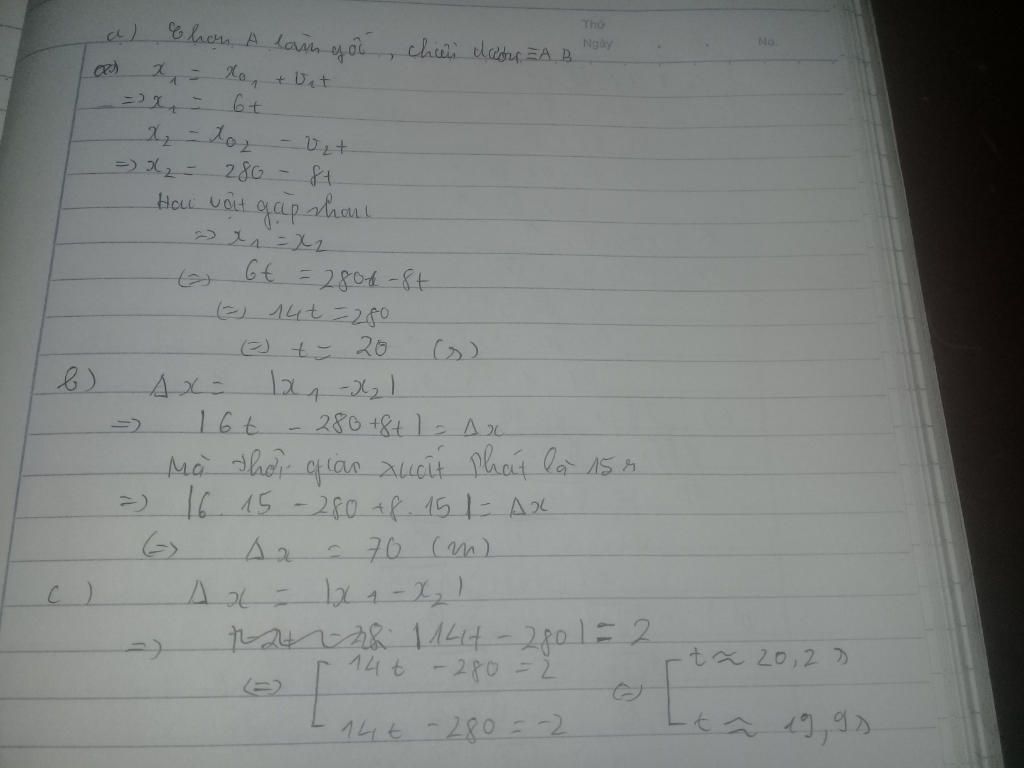 Thứ
Ngày No.
a) Chọn A làm gốc, chiều dương ≡ A B
x₁ = x₀₁ + v₁t
=> x₁ = 6t
x₂ = x₀₂ - v₂t
=> x₂ = 280 - 8t
Hai vật gặp nhau
=> x₁ = x₂
(=) 6t = 280 - 8t
(=) 14t = 280
(=) t = 20 (s)
b) Δx = |x₁ - x₂|
=> |6t - 280 + 8t| = Δx
Mà thời gian xuất phát là 15 s
=> |6. 15 - 280 + 8. 15| = Δx
(=) Δx = 70 (m)
c) Δx = |x₁ - x₂|
=> |14t - 280| = 2
(=) [ 14t - 280 = 2 (=) [ t ≈ 20,2 s
14t - 280 = -2 t ≈ 19,9s